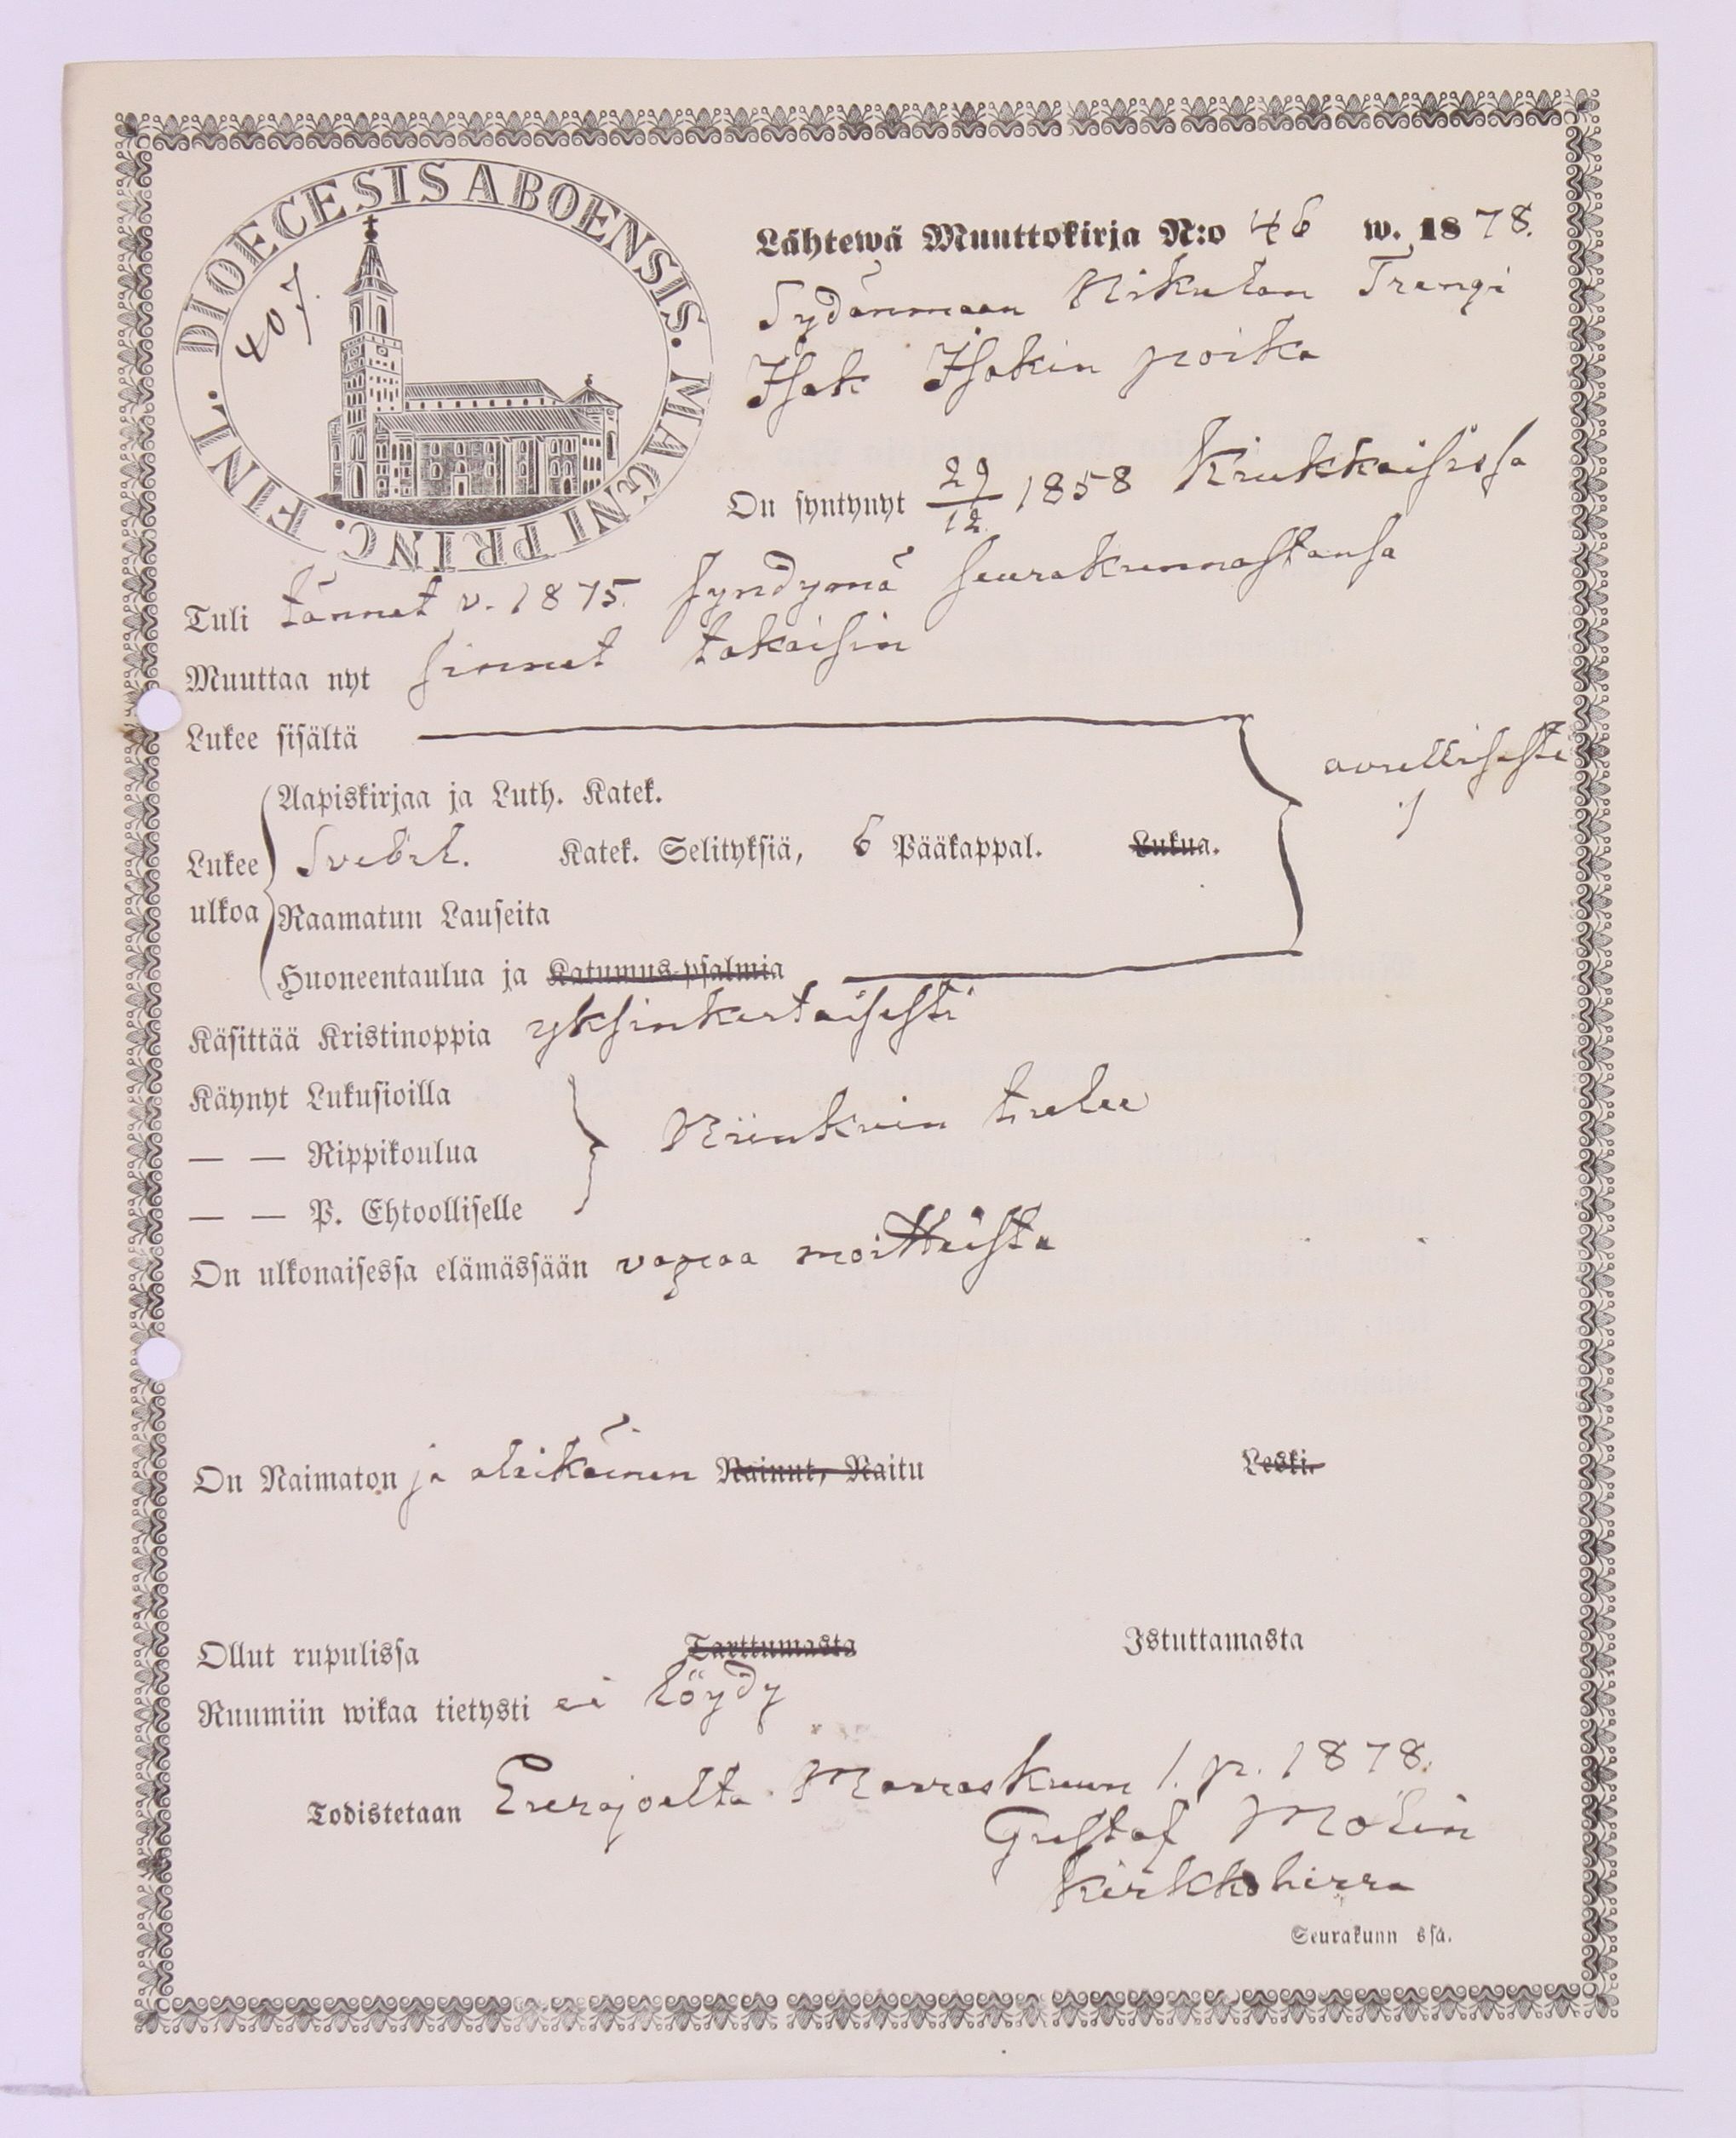 DIOECESIS ABOENSIS. MAGNI PRINC. FINL.
407.
Lähtewä Muuttokirja N:o 46 w. 1878.
Sydänmaan Nikulan Trengi
Isak Isakin poika
On syntynyt 29/12. 1858 Kiukkaisissa
Tuli tännet v. 1875. syndymä seurakunnastansa
Muuttaa nyt sinnet takaisin
Lukee sisältä
avullisesti
Aapiskirjaa ja Luth. Katek.
Lukee ulkoa Svebel. Katek. Selityksiä, 6 Pääkappal. Lukua.
Raamatun Lauseita
Huoneentaulua ja Katumus-psalmia
Käsittää Kristinoppia yksinkertaisesti
Käynyt Lukusioilla
— — Rippikoulua Niinkuin tulee
— — P. Ehtoolliselle
On ulkonaisessa elämässään vapaa moitteista
On Naimaton ja alaikäinen Nainut, Naitu Leski.
Ollut rupulissa Tarttumasta Istuttamasta
Ruumiin wikaa tietysti ei löydy
Todistetaan Eurajoelta Marraskuun 1. p. 1878.
Gustaf Molin
Kirkkoherra
Seurakunn ssa.